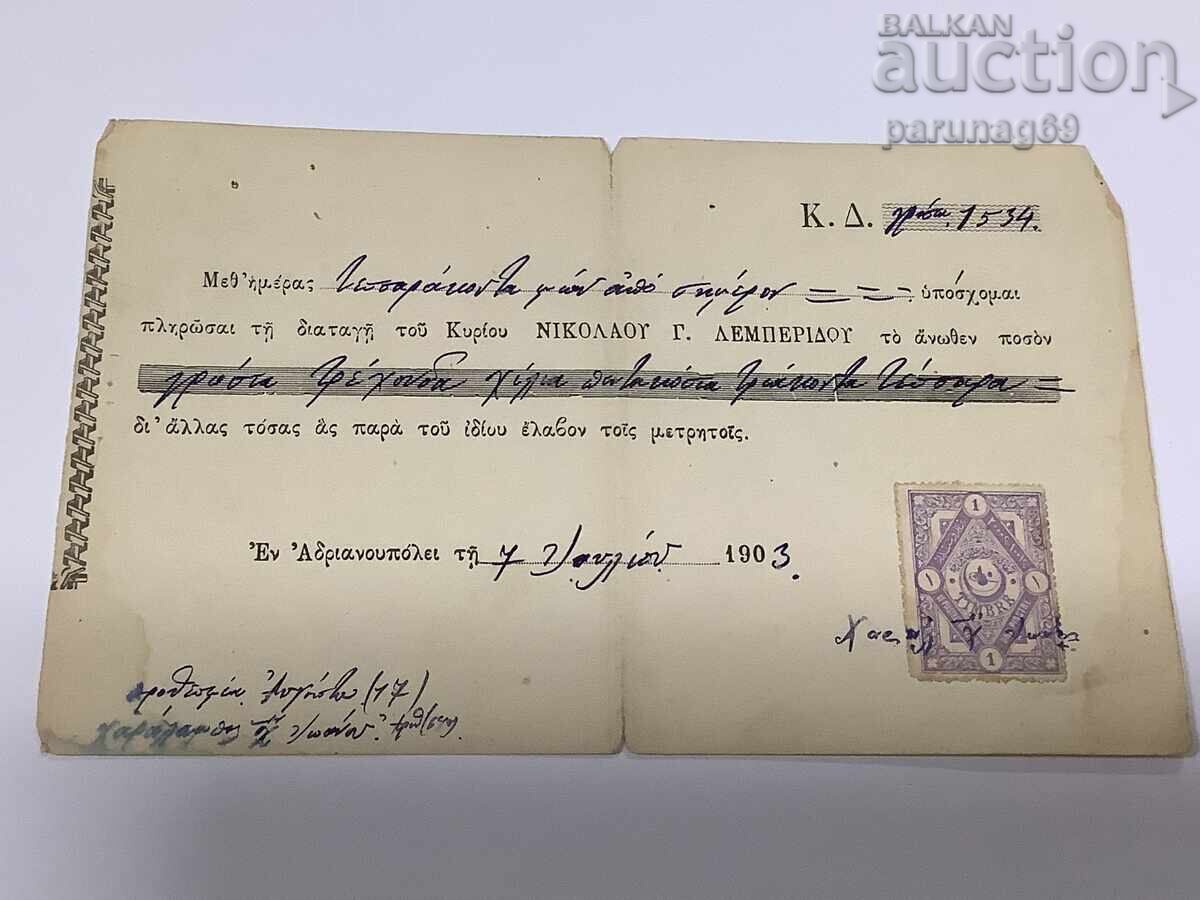 BALKAN
auction
parunag69
Κ. Δ. γρόσια 1534.
Μεθ' ἡμέρας τεσσαράκοντα μίαν ἀπὸ σημέρον ὑπόσχομαι
πληρῶσαι τῇ διαταγῇ τοῦ Κυρίου ΝΙΚΟΛΑΟΥ Γ. ΛΕΜΠΕΡΙΔΟΥ τὸ ἄνωθεν ποσὸν
γρόσια τρέχοντα χίλια πεντακόσια τριάκοντα τέσσαρα
δι' ἄλλας τόσας ἃς παρὰ τοῦ ἰδίου ἔλαβον τοῖς μετρητοῖς.
1
Ἐν Ἀδριανουπόλει τῇ 7 Ἰουλίου 1903.
١ ١
TIMBRE
1
προθεσμία Αὐγούστου (17)
Χαράλαμπος